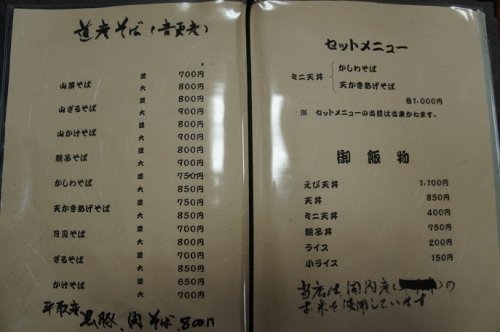 道産そば(音更産)
並 700円
山菜そば 大 800円
並 700円
山ざるそば 大 800円
並 700円
山かけそば 大 800円
並 700円
親子そば 大 800円
並 750円
かしわそば 大 850円
並 750円
天かきあげそば 大 850円
並 700円
月見そば 大 800円
並 700円
ざるそば 大 850円
並 650円
かけそば 大 700円
平取産 黒豚、肉そば 800円
セットメニュー
ミニ天丼
かしわそば
天かきあげそば
各1,000円
※ セットメニューの出前は出来かねます。
御飯物
えび天丼 1,100円
天丼 850円
ミニ天丼 400円
親子丼 750円
ライス 200円
小ライス 150円
当店は国内産( )の
お米を使用しています